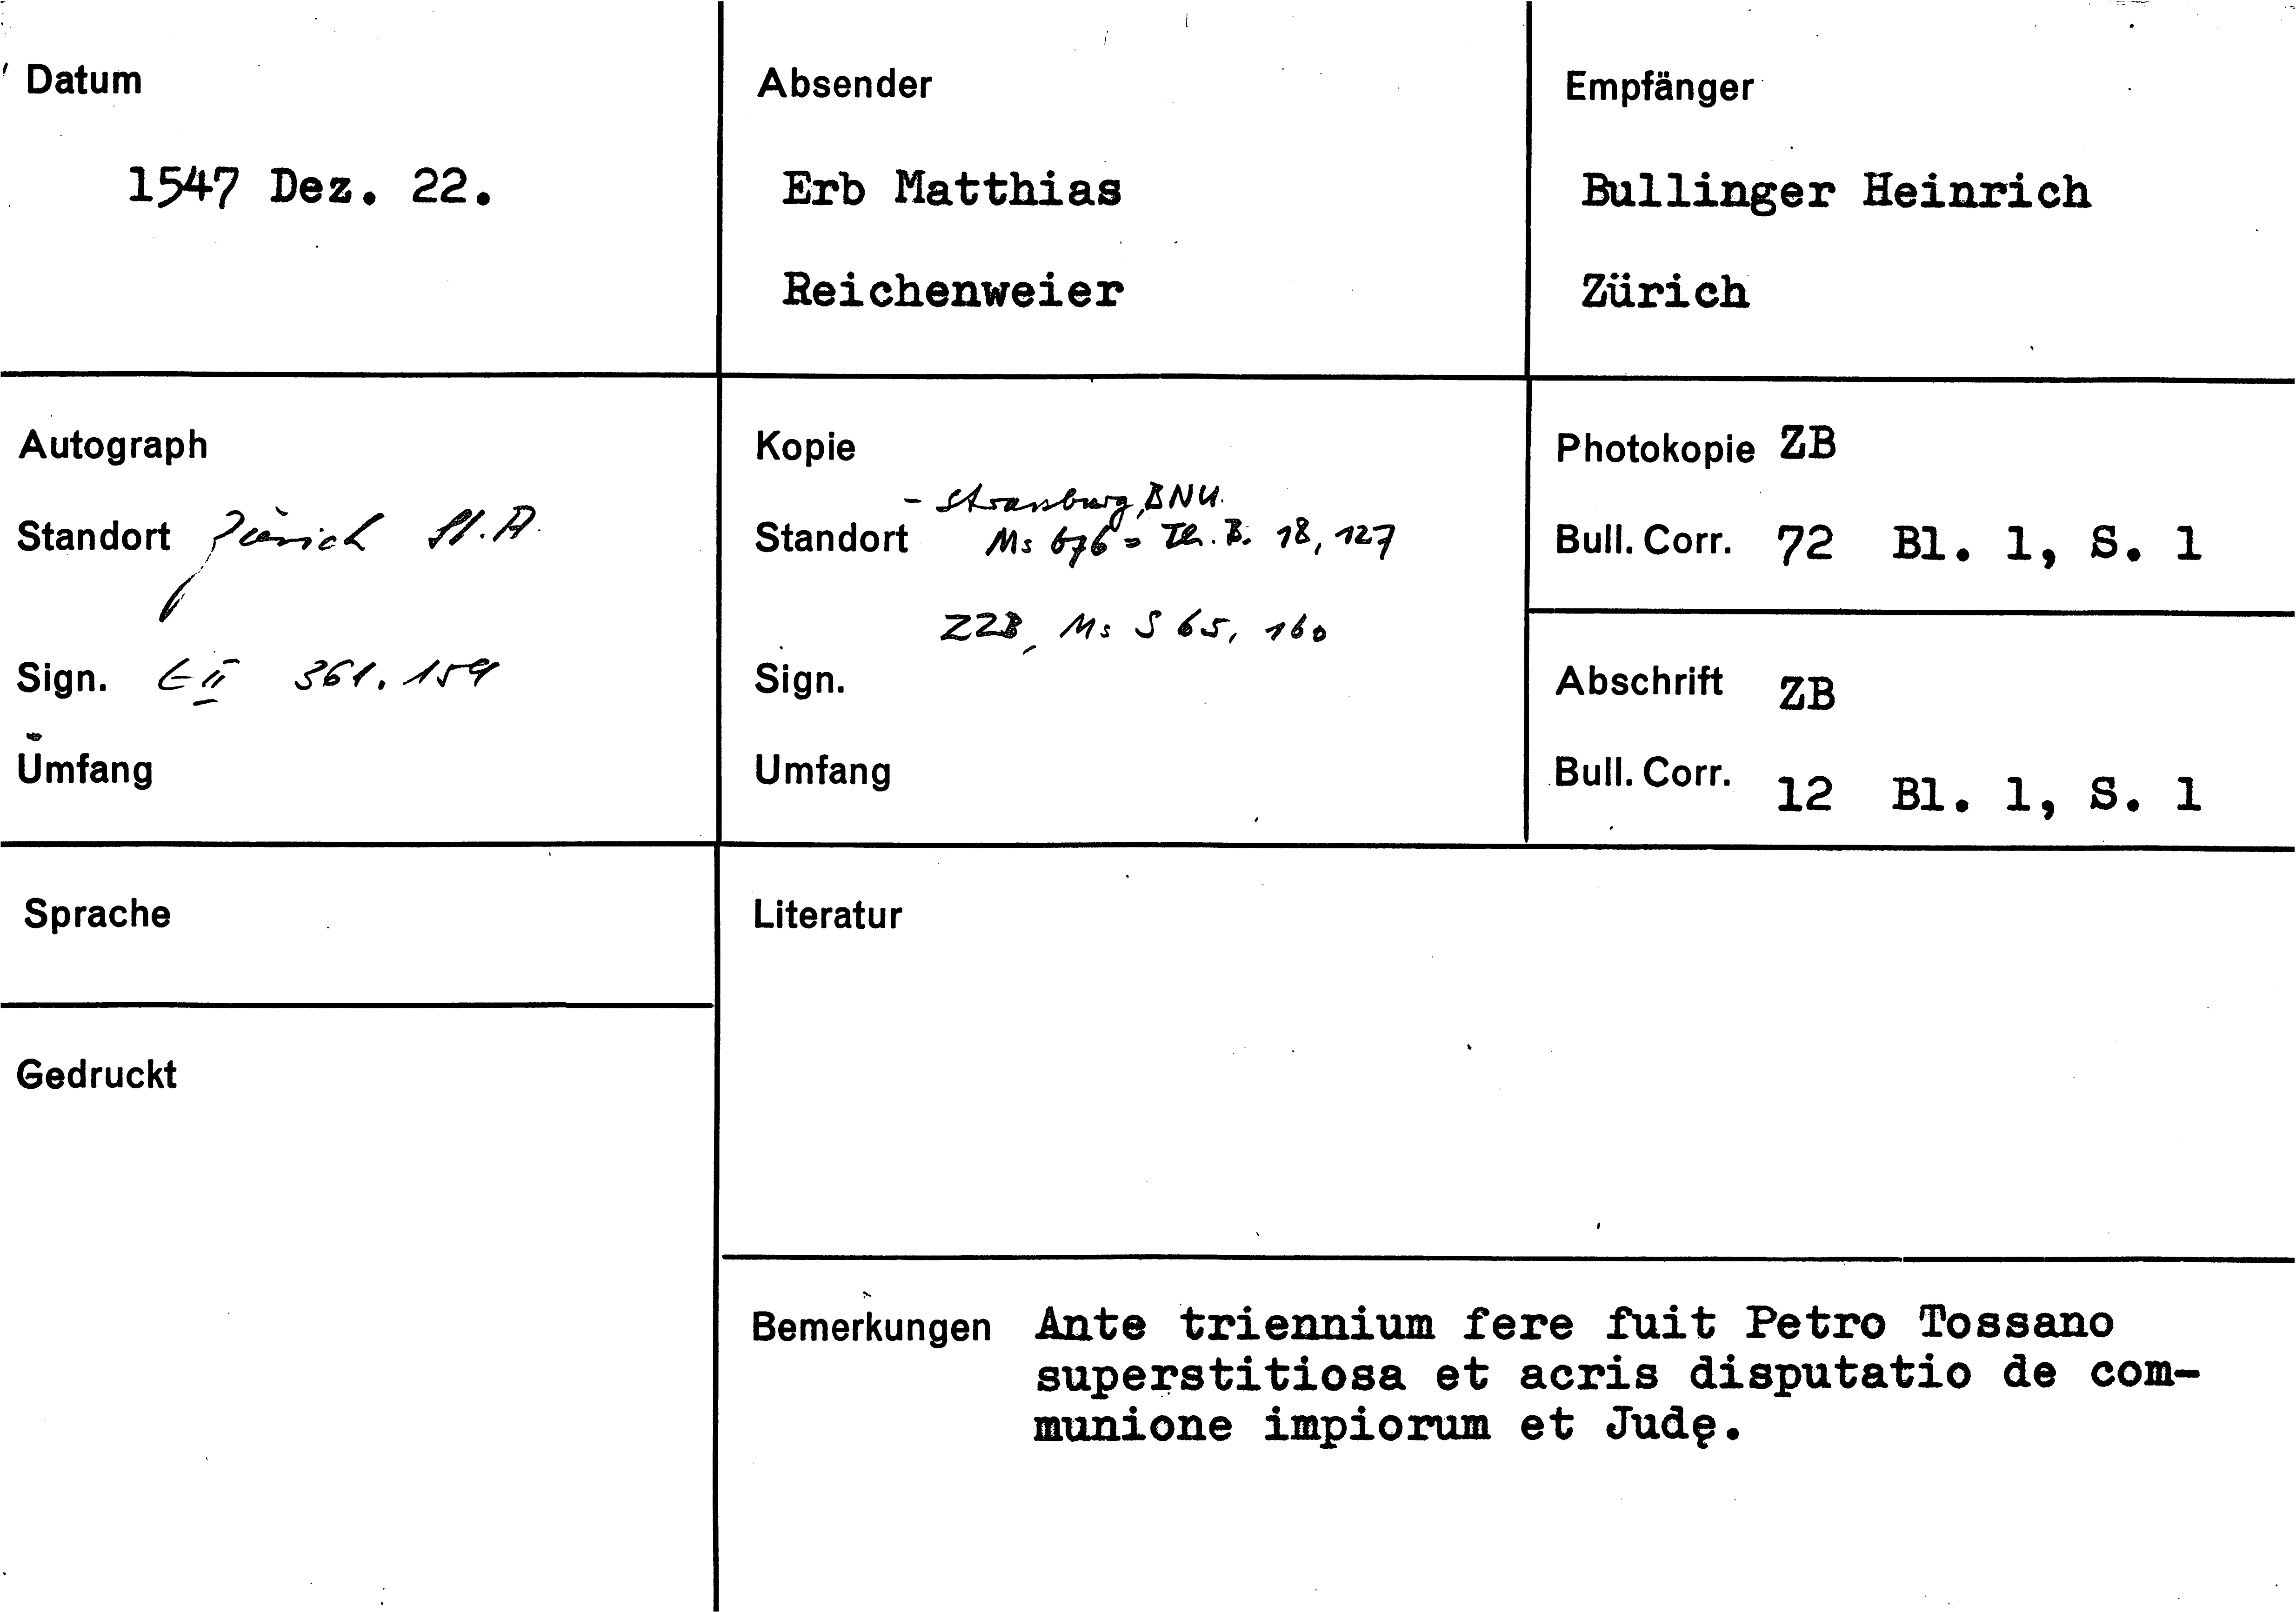 Datum
1547 Dez. 22.
Absender
Erb Matthias
Reichenweier
Empfänger
Bullinger Heinrich
Zürich
Autograph
Standort Zürich St.A.
Sign. E II 361.159
Umfang
Kopie
- Strassburg, BNU.
Standort Ms 676 = Th. B. 18, 127
ZZB, Ms S 65, 160
Sign.
Umfang
Photokopie ZB
Bull. Corr. 72 Bl. 1, S. 1
Abschrift ZB
Bull. Corr. 12 Bl. 1, S. 1
Sprache
Gedruckt
Literatur
Bemerkungen Ante triennium fere fuit Petro Tossano
superstitiosa et acris disputatio de com-
munione impiorum et Judę.